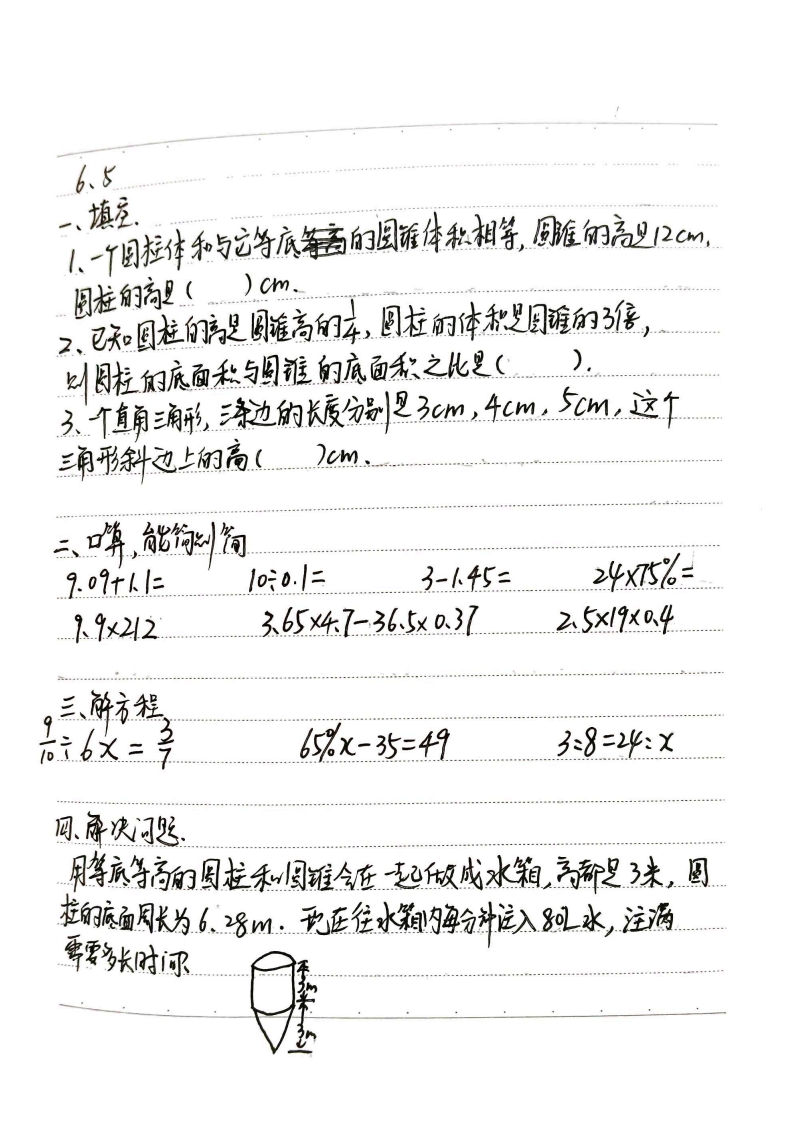 6、5
一、填空.
1、一个圆柱体和与它等底等高的圆锥体积相等,圆锥的高是12cm,
圆柱的高是(    )cm.
2、已知圆柱的高是圆锥高的1/4,圆柱的体积是圆锥的3倍,
则圆柱的底面积与圆锥的底面积之比是(    ).
3、一个直角三角形,三条边的长度分别是3cm,4cm,5cm,这个
三角形斜边上的高(    )cm.
二、口算,能简则简
9.09+1.1=  10÷0.1=  3-1.45=  24×75%=
9.9×212  3.65×4.7-36.5×0.37  2.5×19×0.4
三、解方程
9/10÷6x=3/7  65%x-35=49  3:8=24:x
四、解决问题.
用等底等高的圆柱和圆锥合在一起做成水箱,高都是3米,圆
柱的底面周长为6.28m.现在往水箱内每分钟注入80L水,注满
需要多长时间?
3m
3m